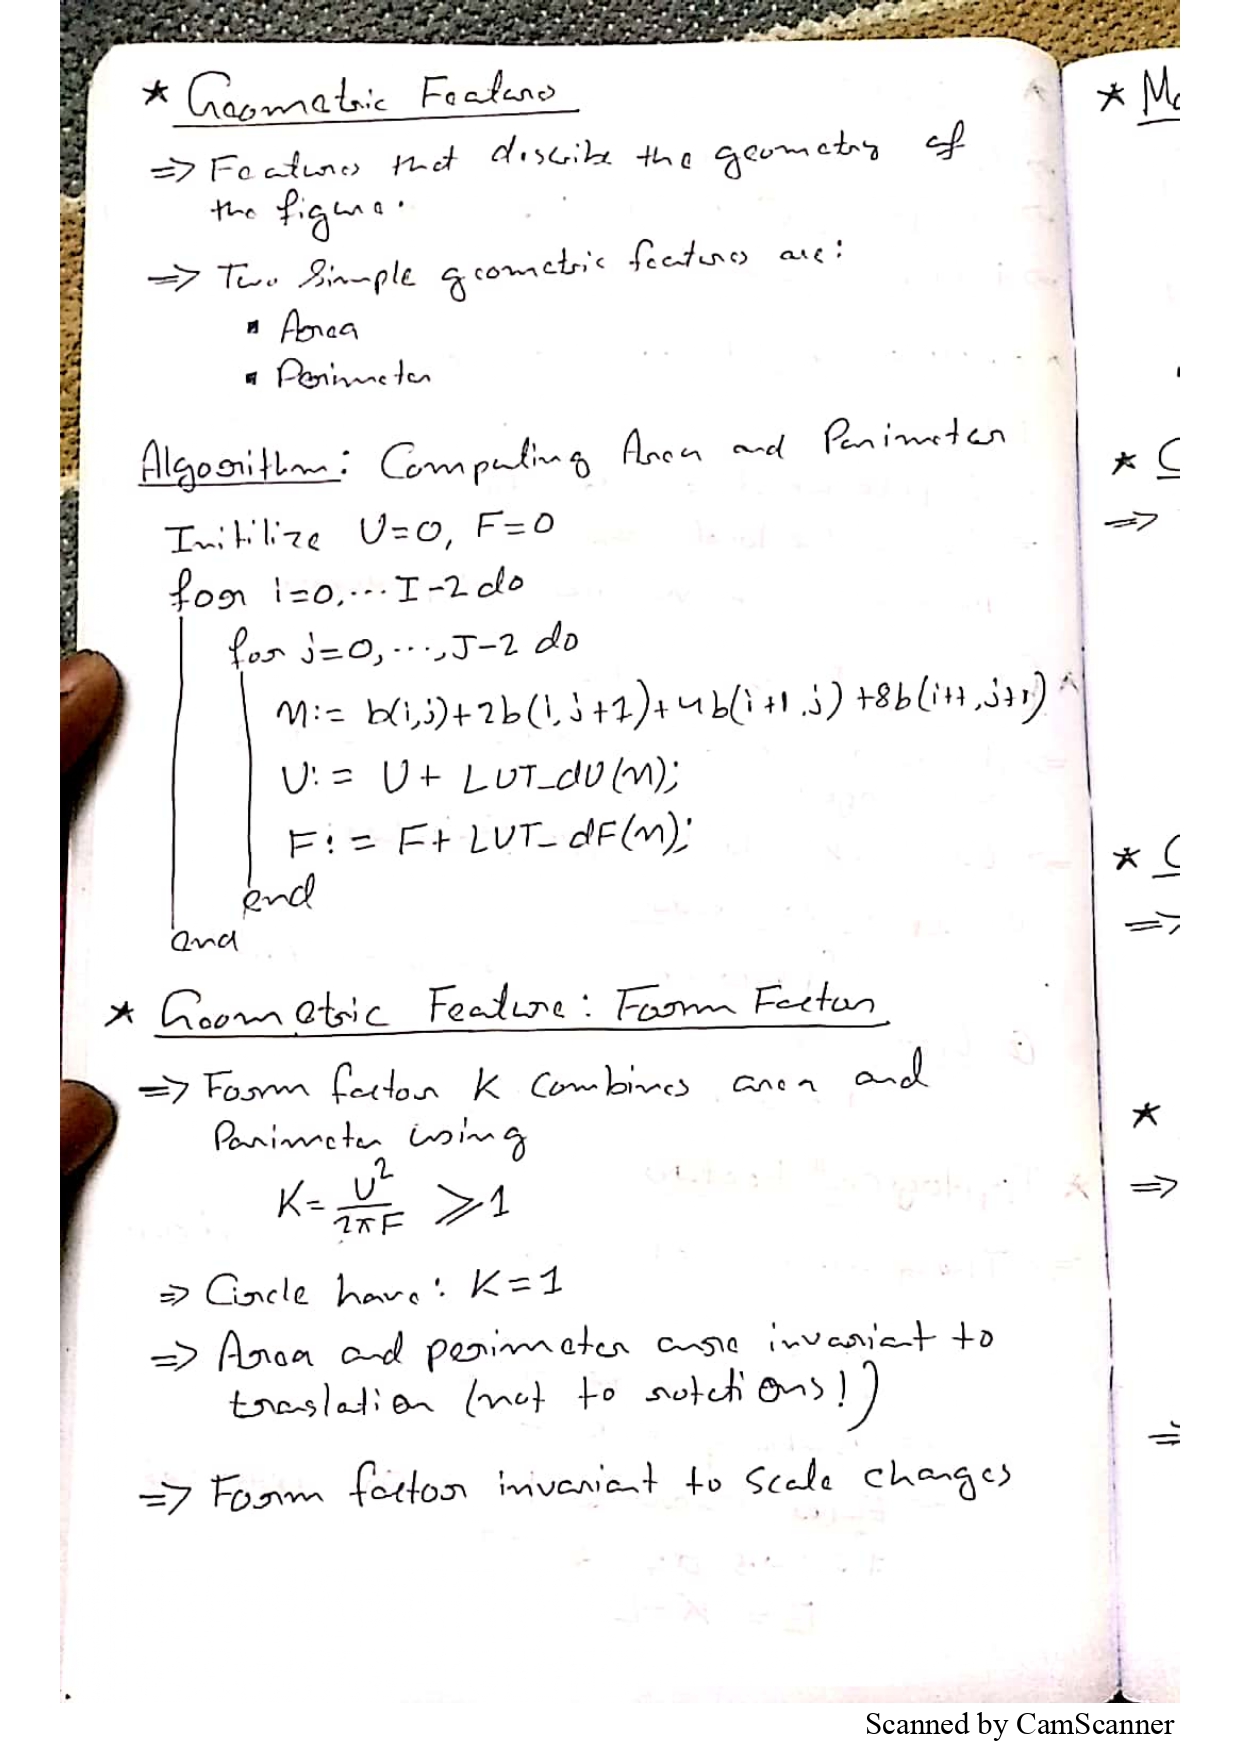 * Geometric Features
=> Features that discribe the geometry of
the figure.
=> Two Simple geometric features are:
▪ Area
▪ Perimeter
Algorithm: Computing Area and Perimeter
Initilize U=0, F=0
for i=0,... I-2 do
for j=0,...,J-2 do
n:= b(i,j)+2b(i,j+1)+4b(i+1,j)+8b(i++,j+1)
U:= U+ LUT_dU(n);
F:= F+ LUT_dF(n);
end
end
* Geometric Feature: Form Factor
=> Form factor K Combines area and
Perimeter using
K= U²/2πF ⩾1
=> Circle have: K=1
=> Area and perimeter are invariant to
traslation (not to rotctions!)
=> Form factor invariant to scale changes
* M
* C
=>
* C
=>
*
=>
=>
Scanned by CamScanner